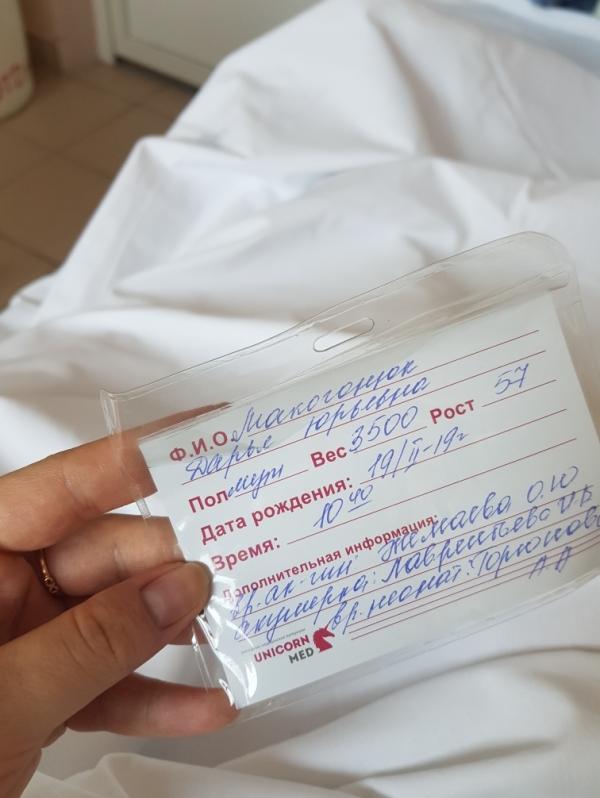 Ф.И.О Макогонюк
Дарья Юрьевна
Пол муж Вес 3500 Рост 57
Дата рождения: 19/II-19г
Время: 10 40
Дополнительная информация:
вр. ак-гин О.Ю
акушерка: Лаврентьева
вр. неонат:
UNICORN
MED